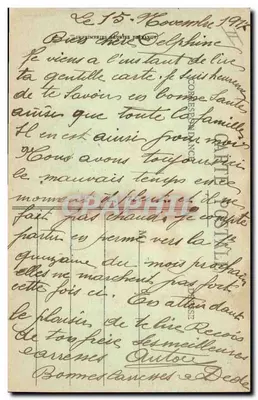 Le 15 Novembre 1917
Bien chère Delphine
Je viens a l'instant de lire
ta gentille carte. Je suis heureux
de te savoir en bonne santé
ainsi que toute la famille
Il en est ainsi pour moi
Nous avons toujours
le mauvais temps en ce
moment il ne
fait pas chaud. Je compte
partir en perme vers la 1ère
quinzaine du mois prochain
elles ne marchent pas fort
cette fois ci. En attendant
le plaisir de te lire Reçois
de ton frère ses meilleures
caresses
Bonnes Caresses a Dédé
CORRESPONDANCE
CARTE POSTALE